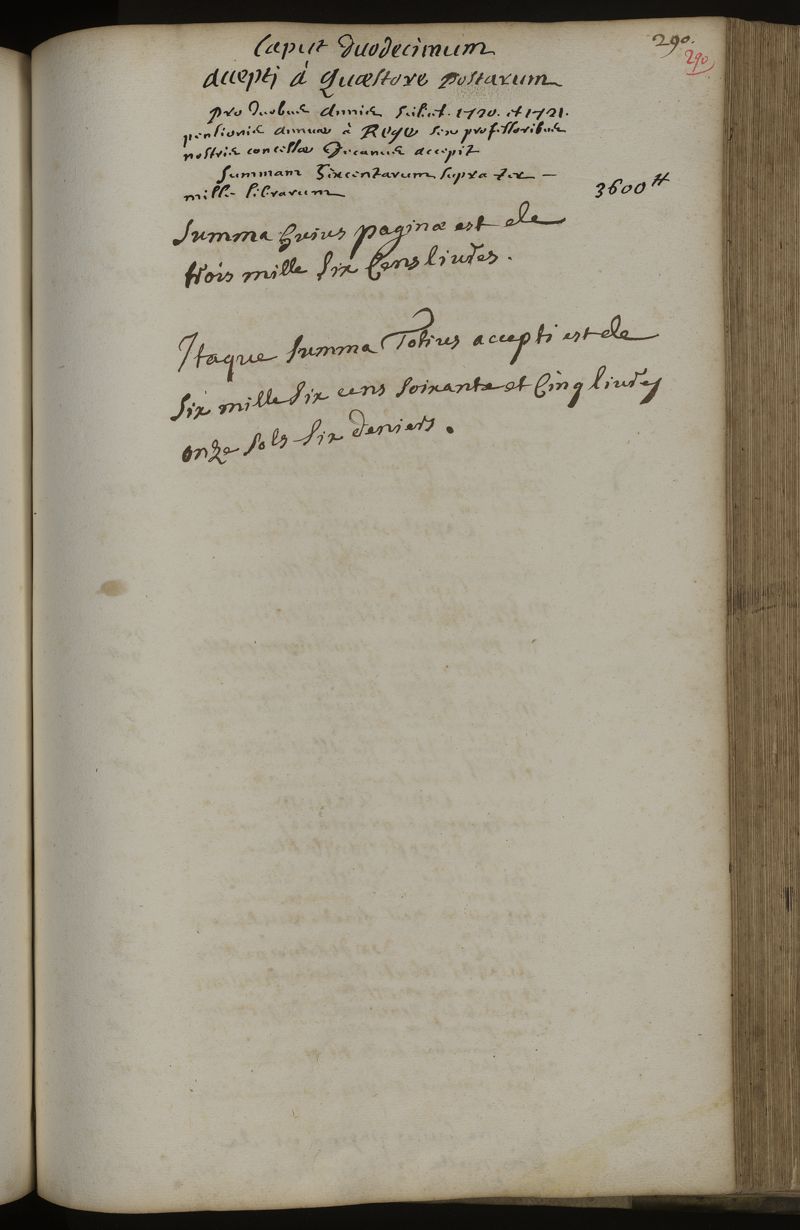 290.
290
Caput duodecimum
accepti à Quæstore postarum
pro duobus annis scilicet. 1720. et 1721.
pensionis annuæ à Rege sex professoribus
nostris concessæ Decanus accepit
Summam sexcentarum supra ter –
mille librarum
3600 ₶
Summa huius paginæ est de
trois mille six cens livres.
Itaque summa Totius accepti est de
six mille six cens soixante et cinq livres
onze sols six deniers.